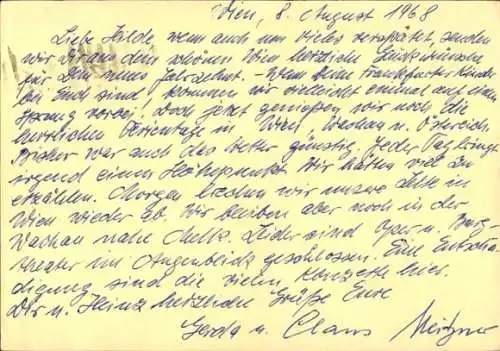 Wien, 8. August 1968
Liebe Hilde, wenn auch um vieles verspätet, senden
wir Dir aus dem schönen Wien herzliche Glückwünsche
für Dein neues Jahrzehnt. - Wenn Deine Frankfurter Kinder
bei Euch sind, kommen wir vielleicht einmal auf einen
Sprung vorbei. Doch jetzt genießen wir noch die
herrlichen Ferientage in Wien, Wachau u. Österreich.
Bisher war auch das Wetter günstig. Jeder Tag bringt
irgend einen Höhepunkt. Wir hätten viel zu
erzählen. Morgen brechen wir unsere Zelte in
Wien wieder ab. Wir bleiben aber noch in der
Wachau nahe Melk. Leider sind Oper u. Burg-
theater im Augenblick geschlossen. Eine Entschä-
digung sind die vielen Konzerte hier.
Dir u. Heinz herzliche Grüße Eure
Gerda u. Claus